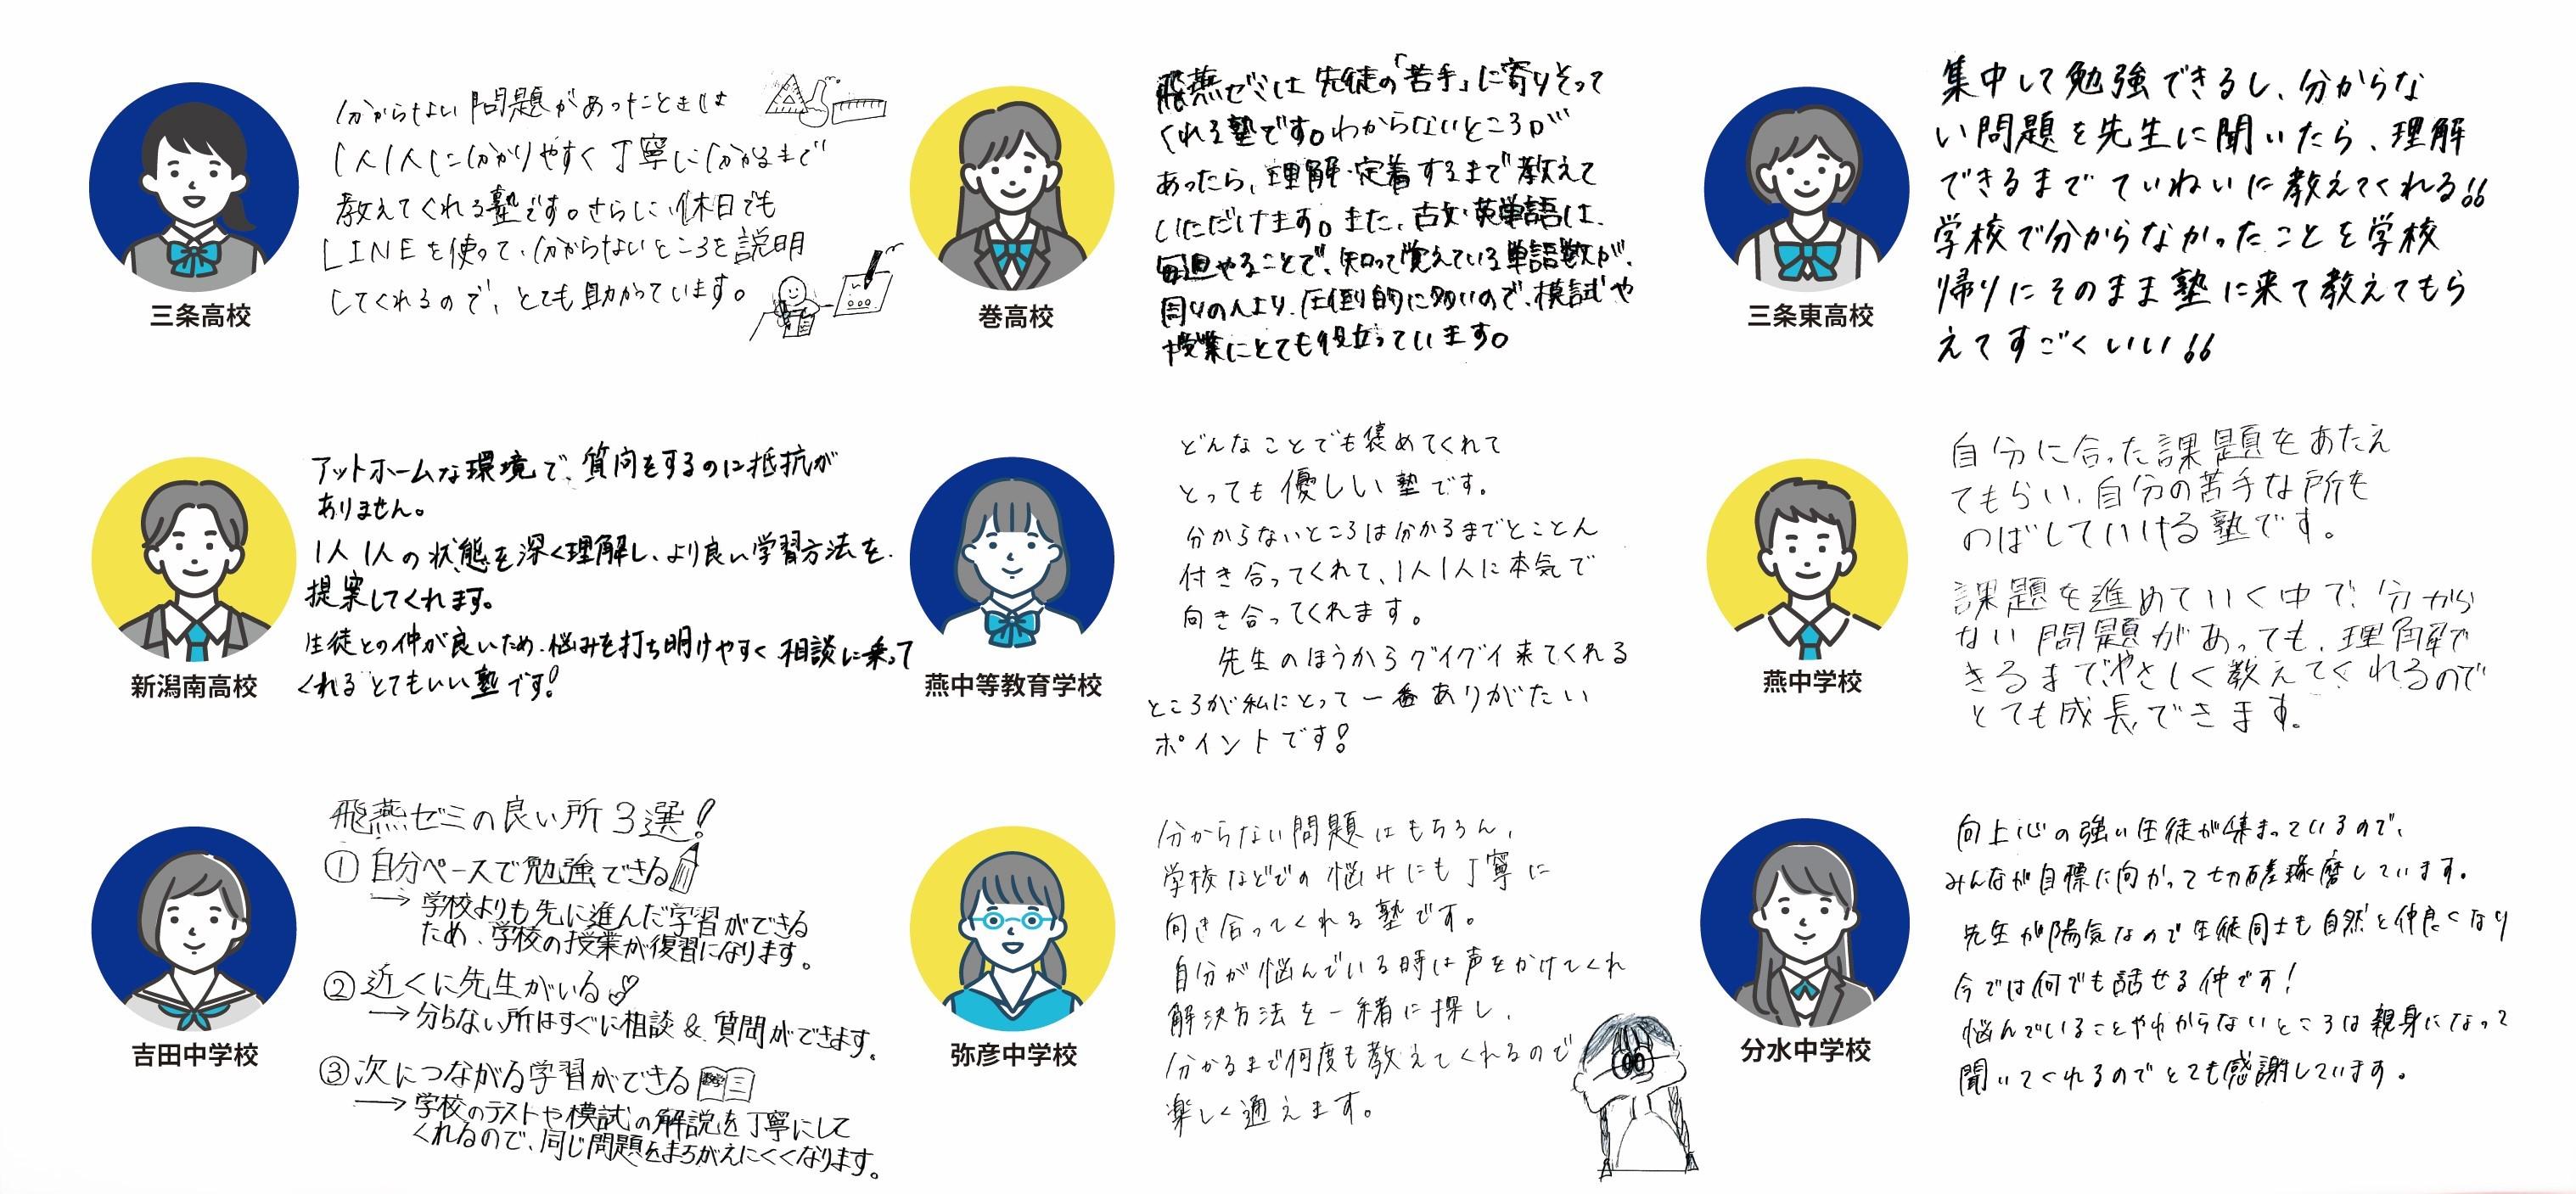 分からない問題があったときは
1人1人に分かりやすく丁寧に分かるまで
教えてくれる塾です。さらに、休日でも
LINEを使って、分からないところを説明
してくれるので、とても助かっています。
三条高校
飛燕ゼミは先徒の「苦手」に寄りそって
くれる塾です。わからないところが
あったら、理解・定着するまで教えて
いただけます。また、古文・英単語は、
毎週やることで、知って覚えている単語数が、
周りの人より、圧倒的に多いので、模試や
授業にとても役立っています。
巻高校
集中して勉強できるし、分からな
い問題を先生に聞いたら、理解
できるまでていねいに教えてくれる!!
学校で分からなかったことを学校
帰りにそのまま塾に来て教えてもら
えてすごくいい!!
三条東高校
アットホームな環境で、質問をするのに抵抗が
ありません。
1人1人の状態を深く理解し、より良い学習方法を
提案してくれます。
生徒との仲が良いため、悩みを打ち明けやすく相談に乗って
くれるとてもいい塾です!
新潟南高校
どんなことでも褒めてくれて
とっても優しい塾です。
分からないところは分かるまでとことん
付き合ってくれて、1人1人に本気で
向き合ってくれます。
先生のほうからグイグイ来てくれる
ところが私にとって一番ありがたい
ポイントです!
燕中等教育学校
自分に合った課題をあたえ
てもらい、自分の苦手な所も
のばしていける塾です。
課題を進めていく中で、分から
ない問題があっても、理解で
きるまでやさしく教えてくれるので
とても成長できます。
燕中学校
飛燕ゼミの良い所3選!
① 自分ペースで勉強できる
→ 学校よりも先に進んだ学習ができる
ため、学校の授業が復習になります。
② 近くに先生がいる
→ 分らない所はすぐに相談 & 質問ができます。
③ 次につながる学習ができる
→ 学校のテストや模試の解説を丁寧にして
くれるので、同じ問題をまちがえにくくなります。
吉田中学校
分からない問題はもちろん、
学校などでの悩みにも丁寧に
向き合ってくれる塾です。
自分が悩んでいる時は声をかけてくれ
解決方法を一緒に探し、
分かるまで何度も教えてくれるので
楽しく通えます。
弥彦中学校
向上心の強い生徒が集まっているので、
みんなが目標に向かって切磋琢磨しています。
先生が陽気なので生徒同士も自然と仲良くなり
今では何でも話せる仲です!
悩んでいることやわからないところは親身になって
聞いてくれるのでとても感謝しています。
分水中学校